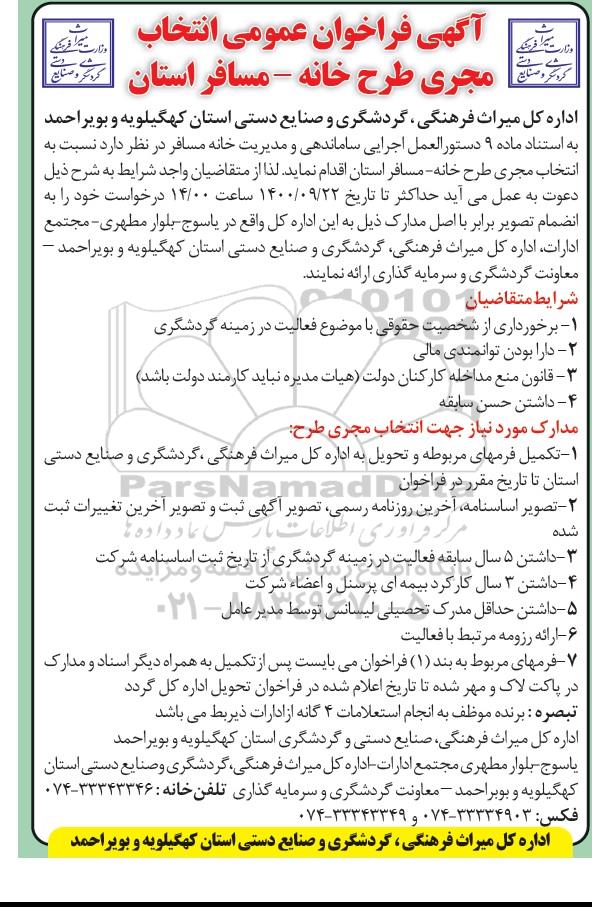 آگهی فراخوان عمومی انتخاب
مجری طرح خانه – مسافر استان
وزارت میراث فرهنگی
گردشگری و صنایع دستی
وزارت میراث فرهنگی
گردشگری و صنایع دستی
اداره کل میراث فرهنگی ، گردشگری و صنایع دستی استان کهگیلویه و بویراحمد
به استناد ماده ۹ دستورالعمل اجرایی ساماندهی و مدیریت خانه مسافر در نظر دارد نسبت به
انتخاب مجری طرح خانه- مسافر استان اقدام نماید. لذا از متقاضیان واجد شرایط به شرح ذیل
دعوت به عمل می آید حداکثر تا تاریخ ۱۴۰۰/۰۹/۲۲ ساعت ۱۴/۰۰ درخواست خود را به
انضمام تصویر برابر با اصل مدارک ذیل به این اداره کل واقع در یاسوج-بلوار مطهری- مجتمع
ادارات، اداره کل میراث فرهنگی، گردشگری و صنایع دستی استان کهگیلویه و بویراحمد –
معاونت گردشگری و سرمایه گذاری ارائه نمایند.
شرایط متقاضیان
۱- برخورداری از شخصیت حقوقی با موضوع فعالیت در زمینه گردشگری
۲- دارا بودن توانمندی مالی
۳- قانون منع مداخله کارکنان دولت (هیات مدیره نباید کارمند دولت باشد)
۴- داشتن حسن سابقه
مدارک مورد نیاز جهت انتخاب مجری طرح:
۱-تکمیل فرمهای مربوطه و تحویل به اداره کل میراث فرهنگی ،گردشگری و صنایع دستی
استان تا تاریخ مقرر در فراخوان
ParsNamadData
۲-تصویر اساسنامه، آخرین روزنامه رسمی، تصویر آگهی ثبت و تصویر آخرین تغییرات ثبت
شده
مرکز فرآوری اطلاعات پارس نماد داده ها
۳-داشتن ۵ سال سابقه فعالیت در زمینه گردشگری از تاریخ ثبت اساسنامه شرکت
پایگاه اطلاع رسانی مناقصه و مزایده
۴-داشتن ۳ سال کارکرد بیمه ای پرسنل و اعضاء شرکت
۰۲۱-۸۸۳۴۹۶۷۰-۵
۵-داشتن حداقل مدرک تحصیلی لیسانس توسط مدیر عامل
۶-ارائه رزومه مرتبط با فعالیت
۷-فرمهای مربوط به بند (۱) فراخوان می بایست پس از تکمیل به همراه دیگر اسناد و مدارک
در پاکت لاک و مهر شده تا تاریخ اعلام شده در فراخوان تحویل اداره کل گردد
تبصره : برنده موظف به انجام استعلامات ۴ گانه از ادارات ذیربط می باشد
اداره کل میراث فرهنگی، صنایع دستی و گردشگری استان کهگیلویه و بویراحمد
یاسوج-بلوار مطهری مجتمع ادارات-اداره کل میراث فرهنگی،گردشگری وصنایع دستی استان
کهگیلویه و بویراحمد – معاونت گردشگری و سرمایه گذاری تلفن خانه : ۳۳۳۴۳۳۴۶-۰۷۴
فکس: ۳۳۳۳۴۹۰۳-۰۷۴ و ۳۳۳۴۳۳۴۹-۰۷۴
اداره کل میراث فرهنگی ، گردشگری و صنایع دستی استان کهگیلویه و بویراحمد